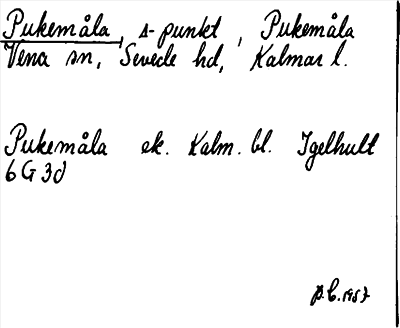 Pukemåla, s-punkt, Pukemåla
Vena sn, Sevede hd, Kalmar l.
Pukemåla ek. Kalm. bl. Igelhult
6G3d
1957